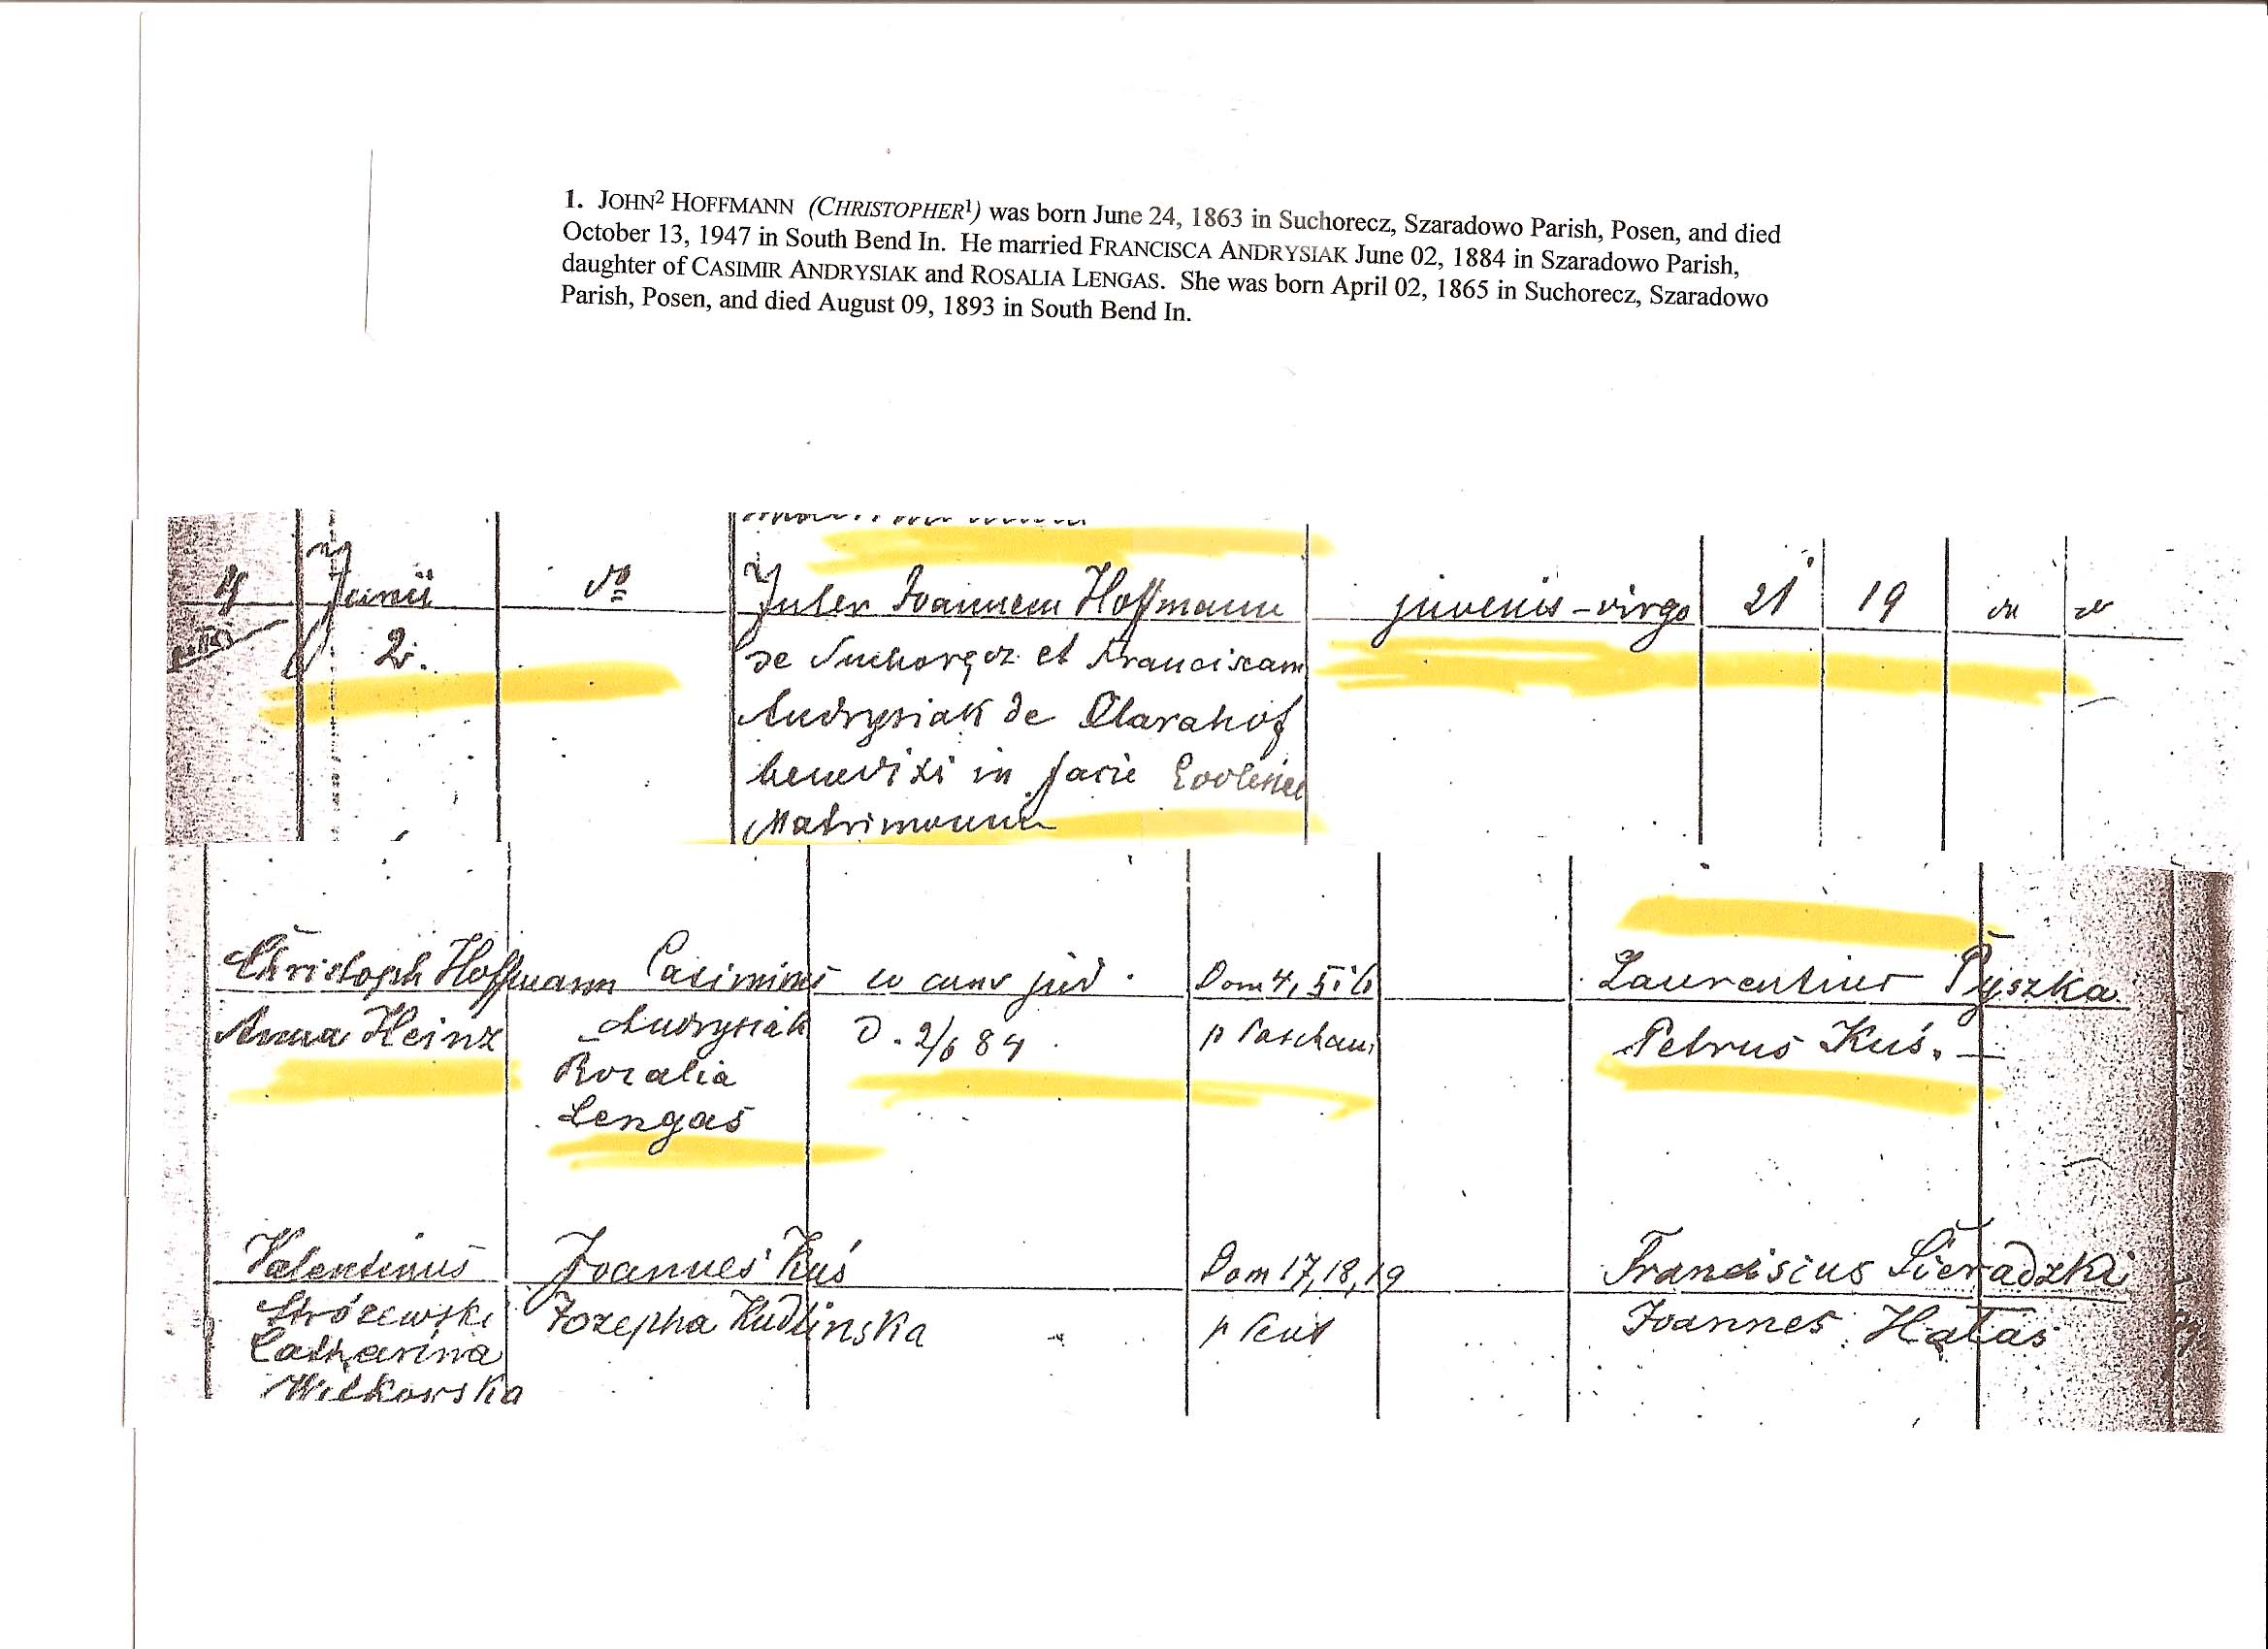 1. JOHN² HOFFMANN (CHRISTOPHER¹) was born June 24, 1863 in Suchorecz, Szaradowo Parish, Posen, and died
October 13, 1947 in South Bend In. He married FRANCISCA ANDRYSIAK June 02, 1884 in Szaradowo Parish,
daughter of CASIMIR ANDRYSIAK and ROSALIA LENGAS. She was born April 02, 1865 in Suchorecz, Szaradowo
Parish, Posen, and died August 09, 1893 in South Bend In.
Junii
2.
Inter Joannem Hoffmann juvenis - virgo 21 19
de Suchoręcz et Franciscam
Andrysiak de Clarahof
benedixi in facie Ecclesiae
Matrimonium
Christoph Hoffmann Casimirus Dom 4, 5 i 6 Laurentius Pyszka
Anna Heinz Andrysiak D. 2/6 84 p Pascham Petrus Kuś.
Rozalia
Lengas
Valentinus Joannes Kuś Dom 17, 18, 19 Franciscus Sieradzki
Strózewski Jozepha Kudlinska p Pent Joannes Hałas
Catharina
Witkowska